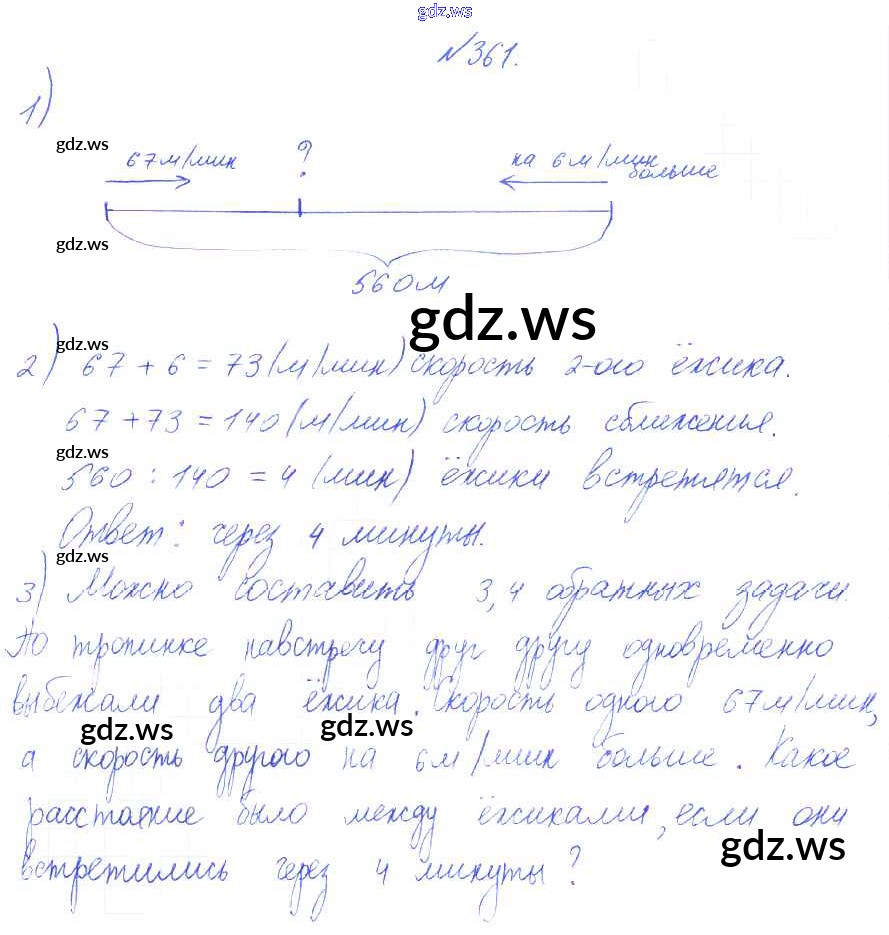 gdz.ws
№361.
1)
gdz.ws
67м/мин ? на 6м/мин больше
gdz.ws
560м
gdz.ws
gdz.ws
2) 67 + 6 = 73 (м/мин) скорость 2-ого ёжика.
67 + 73 = 140 (м/мин) скорость сближенья.
gdz.ws
560 : 140 = 4 (мин) ёжики встретятся.
Ответ: через 4 минуты.
gdz.ws
3) Можно составить 3,4 обратных задачи.
По тропинке навстречу друг другу одновременно
выбежали два ёжика. Скорость одного 67м/мин,
gdz.ws gdz.ws
а скорость другого на 6м/мин больше. Какое
расстояние было между ёжиками, если они
gdz.ws
встретились через 4 минуты?